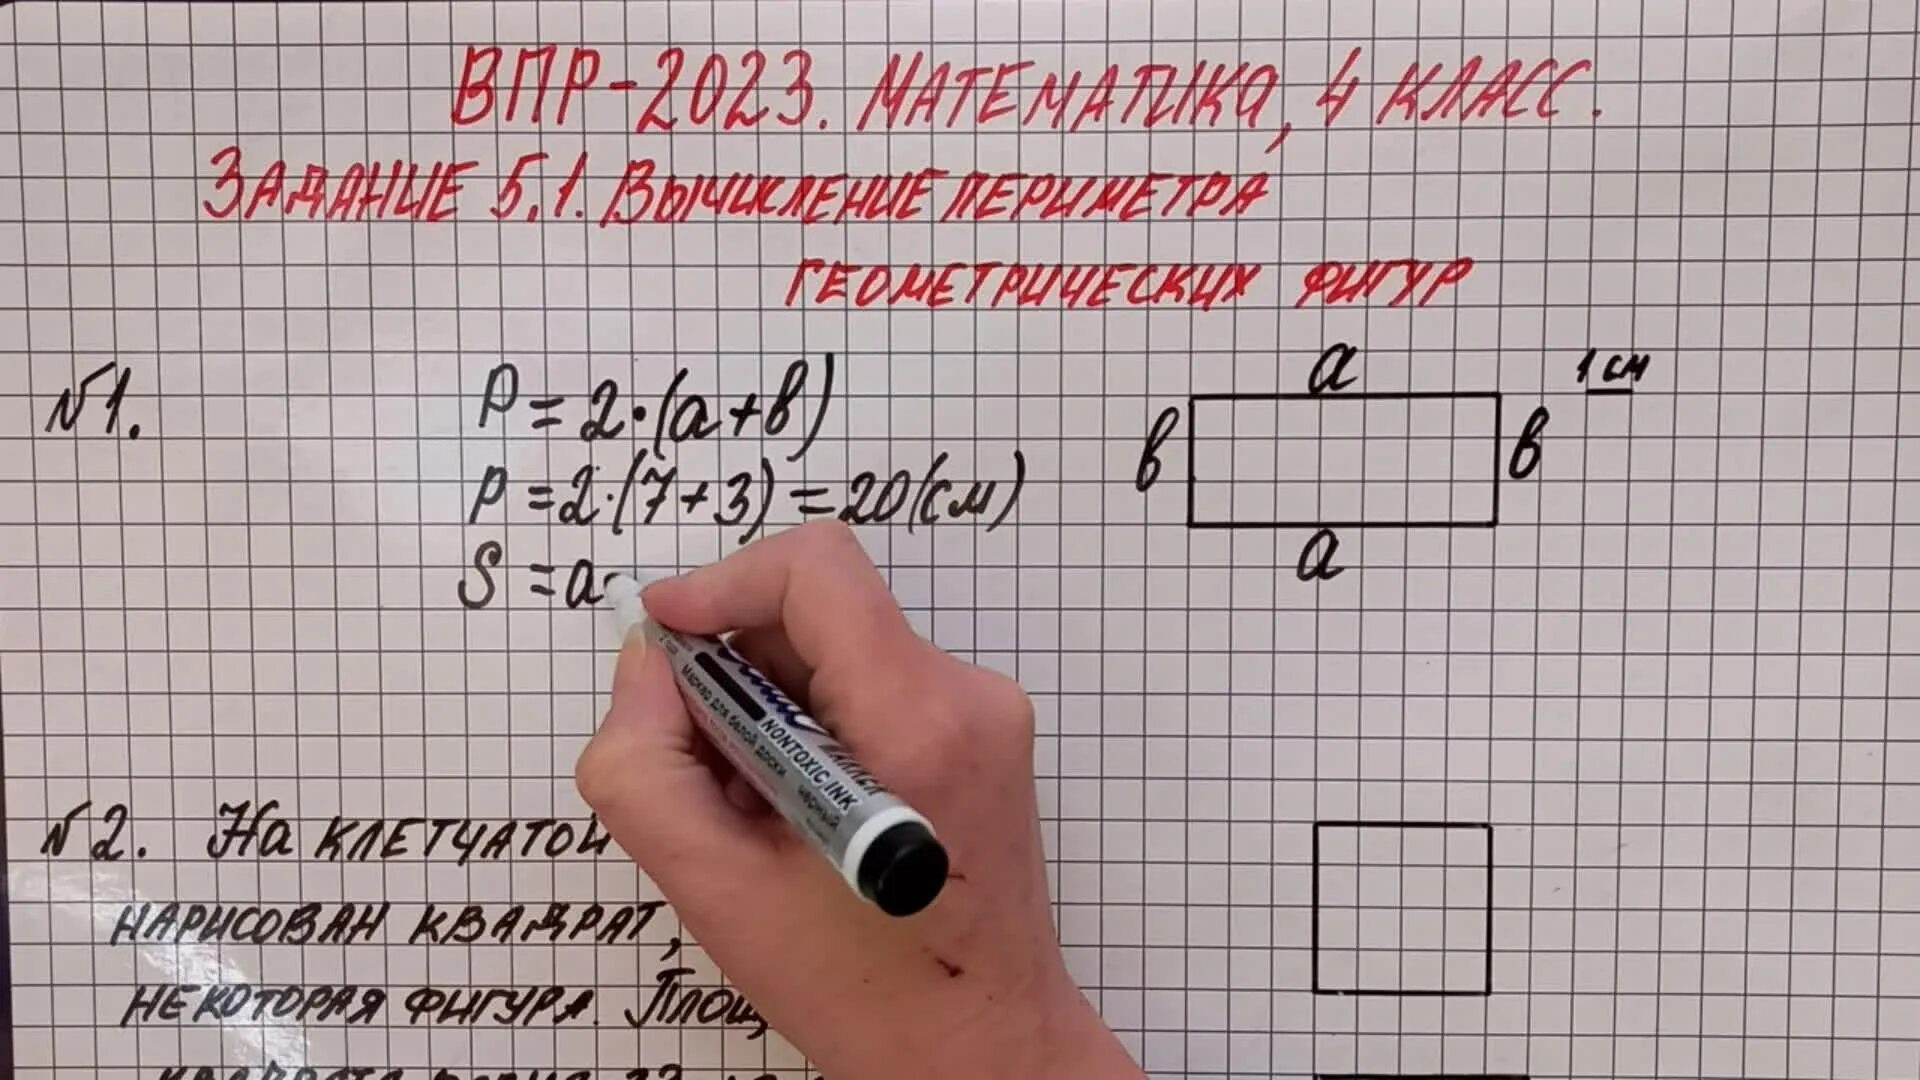 ВПР-2023. МАТЕМАТИКА, 4 КЛАСС.
ЗАДАНИЕ 5.1. ВЫЧИСЛЕНИЕ ПЕРИМЕТРА
ГЕОМЕТРИЧЕСКИХ ФИГУР
№1.
P = 2·(a+b)
P = 2·(7+3) = 20(см)
S = a·
a
b
b
a
1 см
Маркер для белой доски
NONTOXIC INK
черный
№2. На КЛЕТЧАТОЙ
НАРИСОВАН КВАДРАТ,
НЕКОТОРАЯ ФИГУРА. Площ